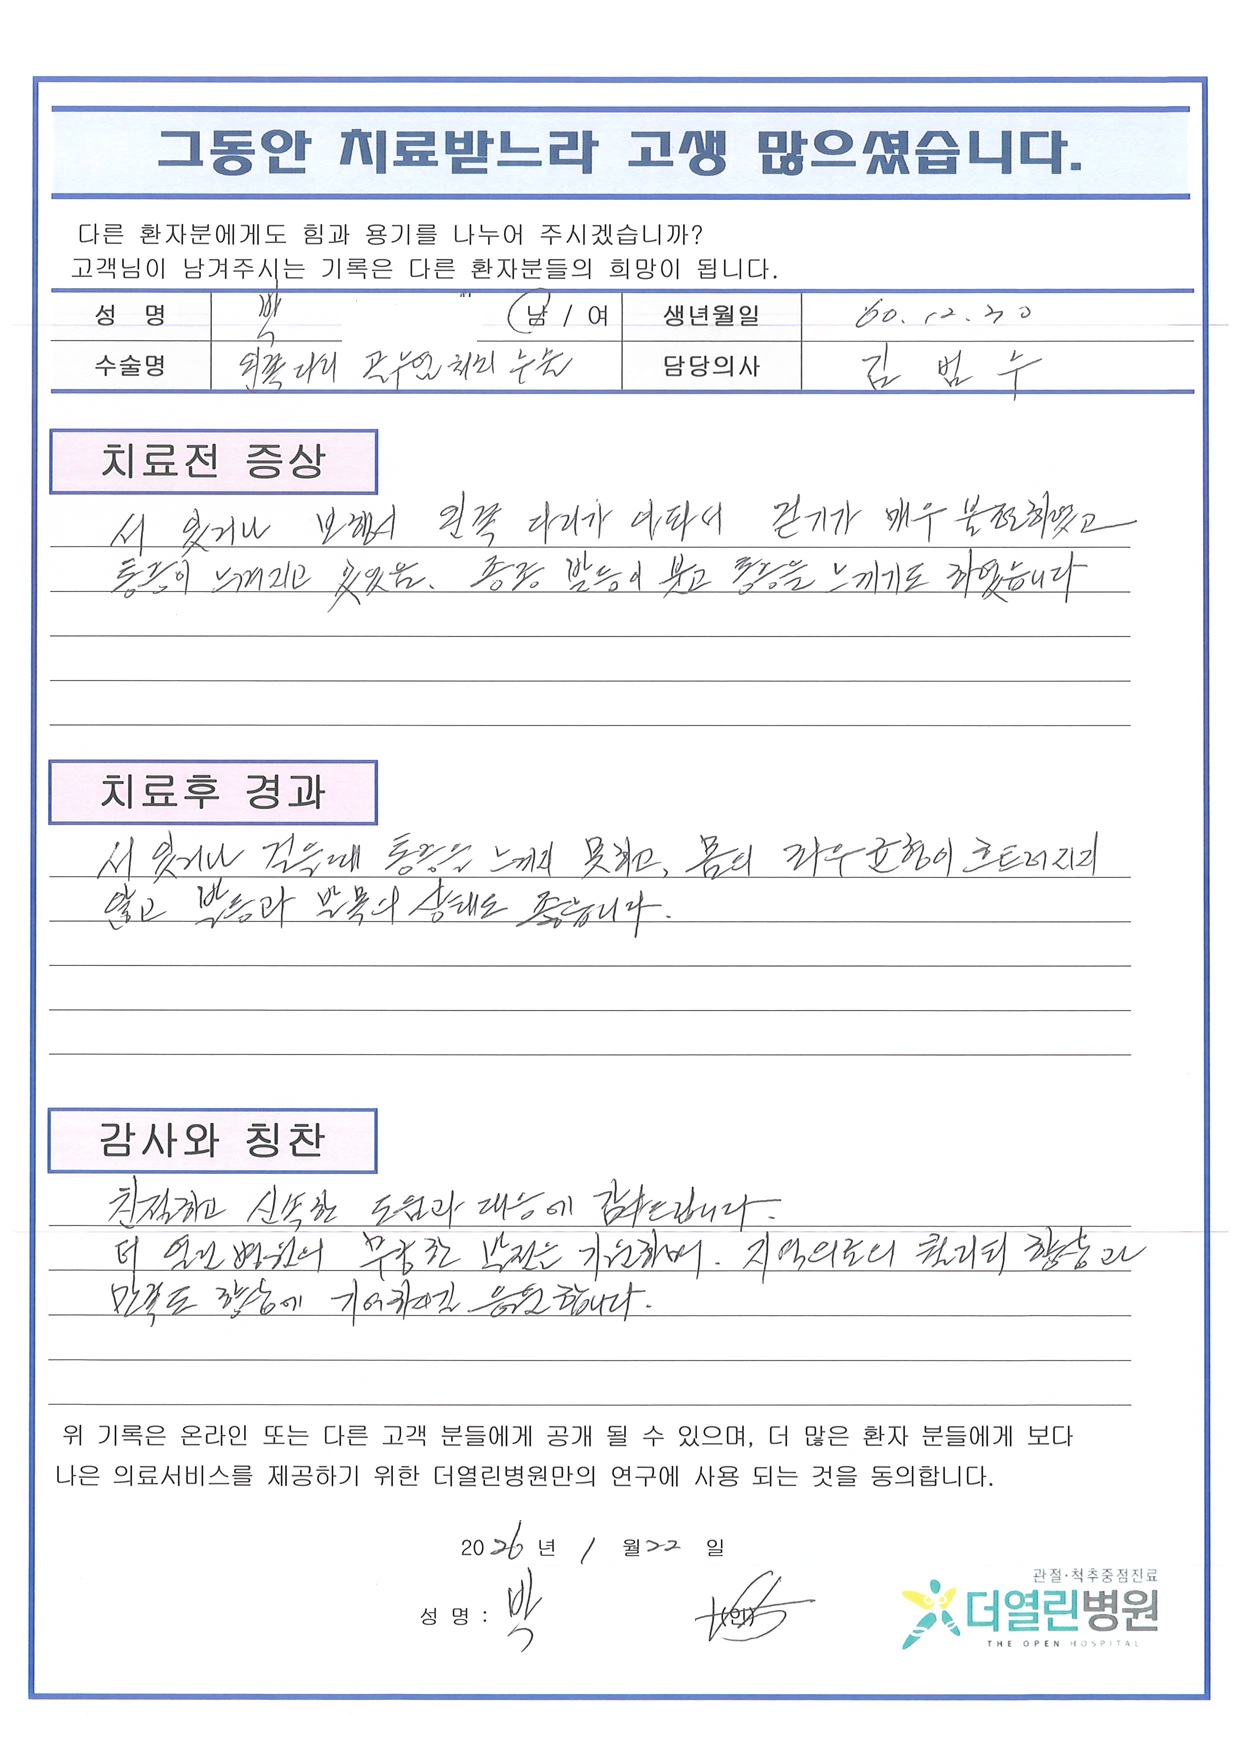 그동안 치료받느라 고생 많으셨습니다.
다른 환자분에게도 힘과 용기를 나누어 주시겠습니까?
고객님이 남겨주시는 기록은 다른 환자분들의 희망이 됩니다.
성 명 박 남 / 여 생년월일 60. 12. 30
수술명 왼쪽 다리 담당의사 김 범 수
치료전 증상
서 있거나 보행시 왼쪽 다리가 아파서 걷기가 매우 불편하였고
통증이 느껴지고 있었음. 종종 발등이 붓고 통증을 느끼기도 하였습니다
치료후 경과
서 있거나 걸을때 통증을 느끼지 못하고, 몸의 좌우균형이 흐트러지지
않고 발등과 발목의 상태도 좋습니다.
감사와 칭찬
친절하고 신속한 도움과 대응에 감사드립니다.
더 열린 병원의 무궁한 발전을 기원하며. 지역의료의 퀄리티 향상과
만족도 향상에 기여하시길 응원합니다.
위 기록은 온라인 또는 다른 고객 분들에게 공개 될 수 있으며, 더 많은 환자 분들에게 보다
나은 의료서비스를 제공하기 위한 더열린병원만의 연구에 사용 되는 것을 동의합니다.
2026 년 1 월 22 일
성 명 : 박 (인)
관절·척추중점진료
더열린병원
THE OPEN HOSPITAL